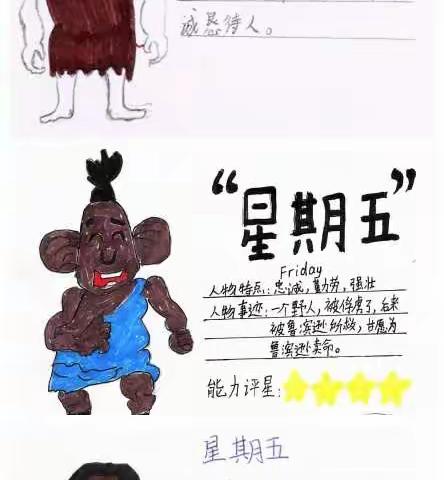 诚恳待人。
“星期五”
Friday
人物特点:忠诚,勤劳,强壮
人物事迹:一个野人,被俘虏了,后来
被鲁滨逊所救,甘愿为
鲁滨逊卖命。
能力评星:
星期五